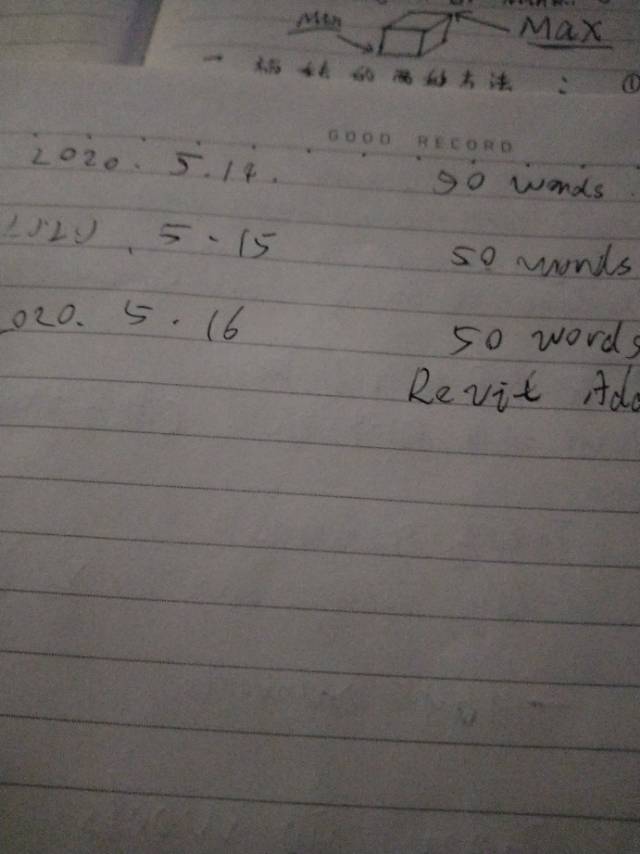 Min
Max
一 的两种方法 : ①
GOOD RECORD
2020. 5.14. 90 words
2020. 5.15 50 words
2020. 5.16 50 words
Revit